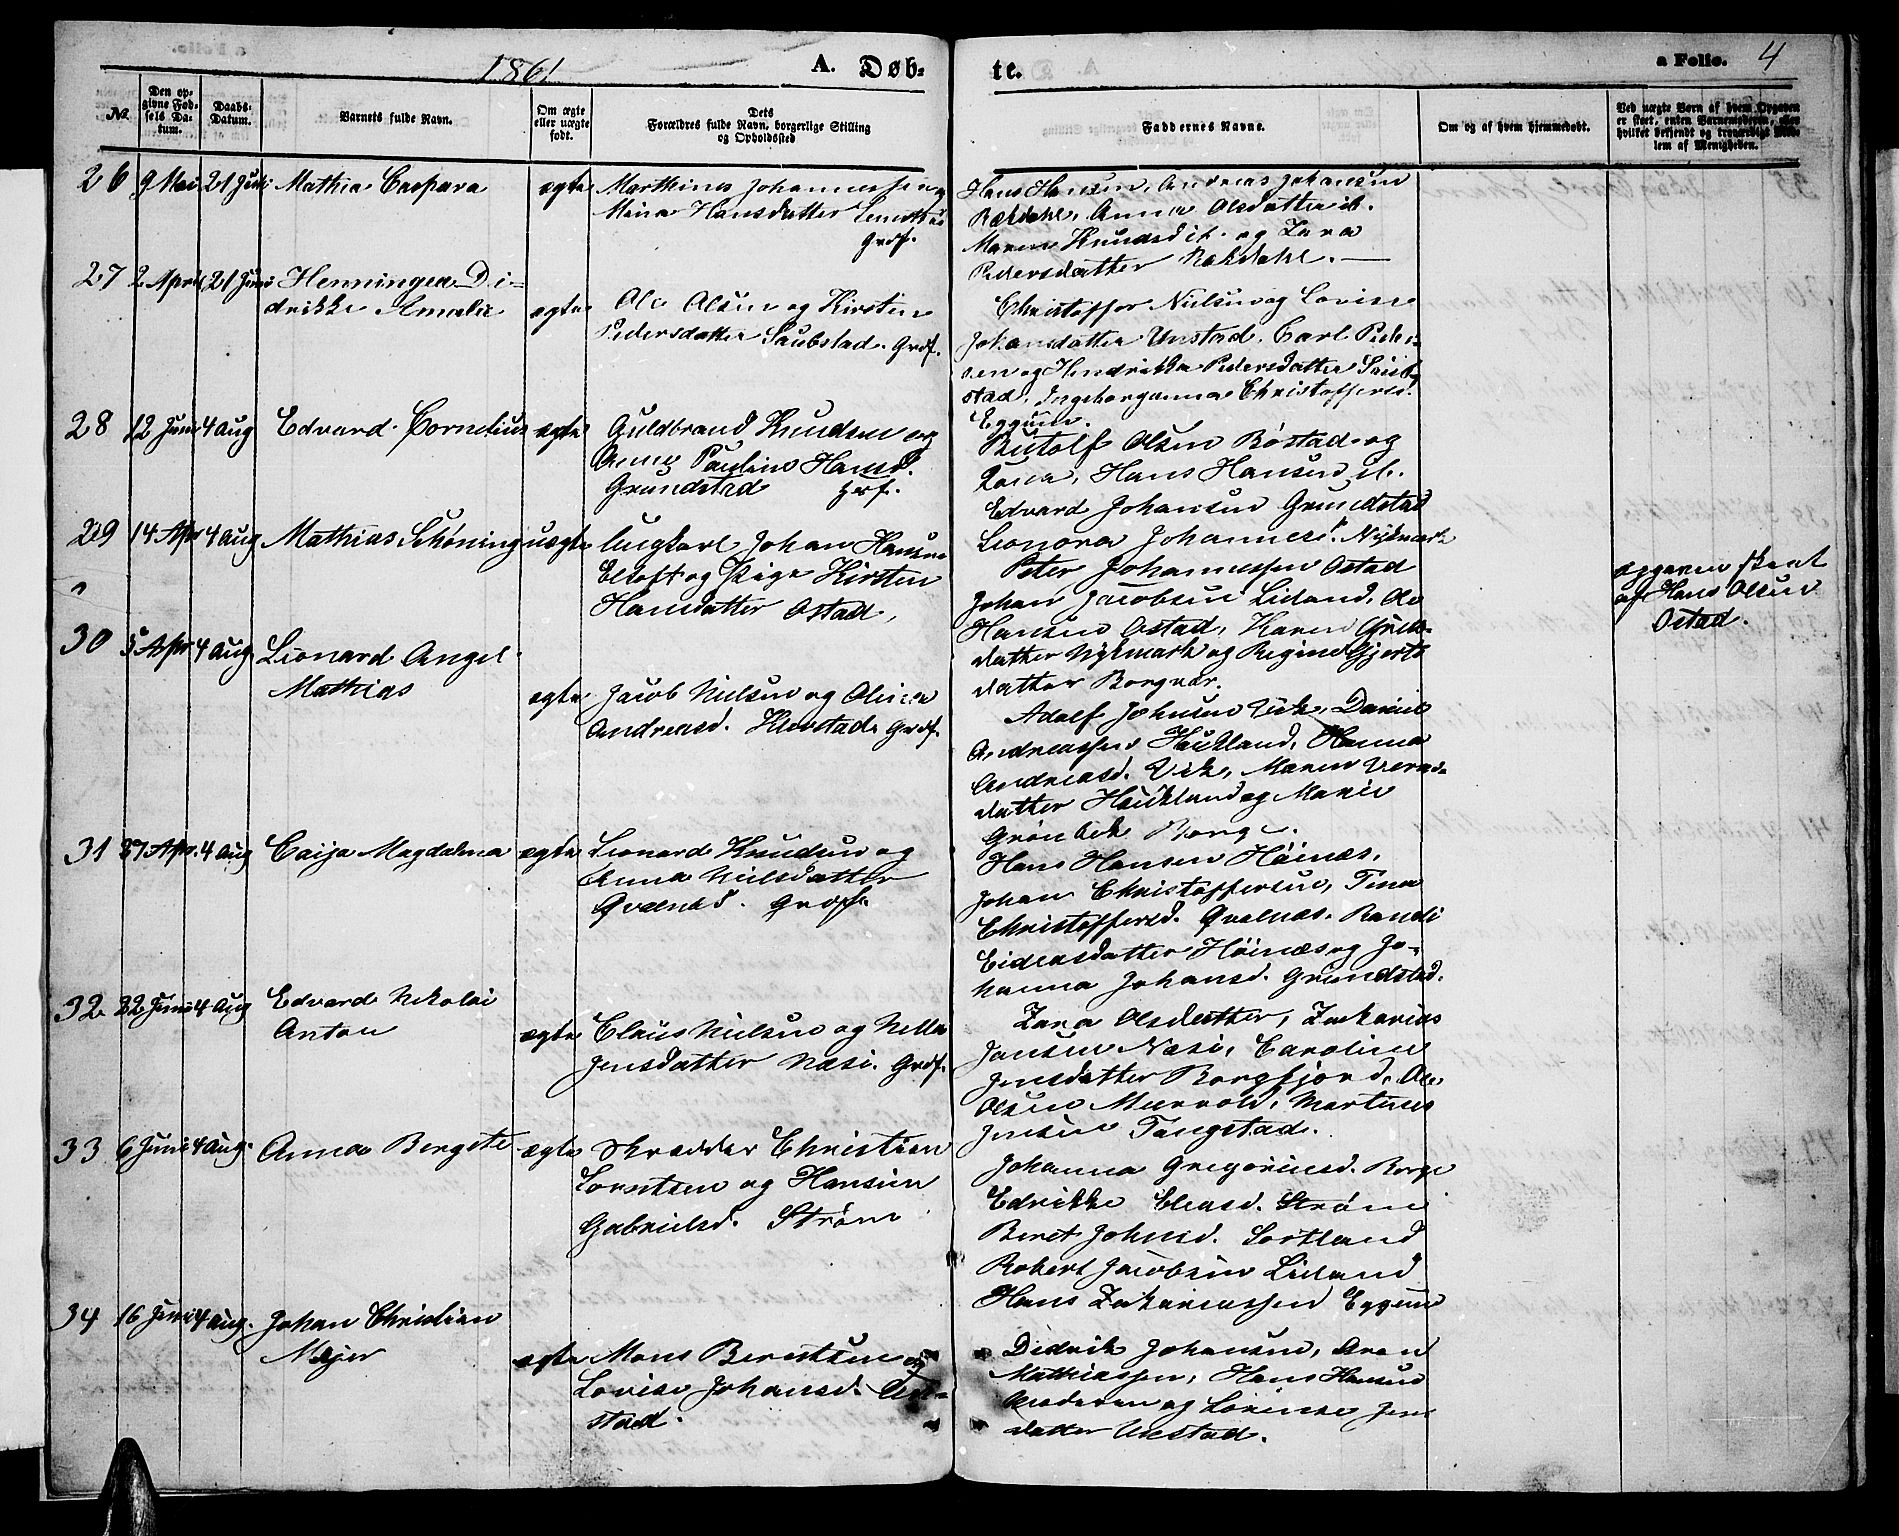 1861
A. Døb-
te.
a Folio. 4
No.
Den op-
givne Fød-
sels Da-
tum.
Daabs-
Datum.
Barnets fulde Navn.
Om ægte
eller uægte
født.
Dets
Forældres fulde Navn, borgerlige Stilling
og Opholdssted
Faddernes Navne.
Om og af hvem hjemmedøbt.
Ved uægte Børn af hvem Opgaven
er skeet, enten Barnemoderen, eller
hvilket bekjendt og troværdigt Med-
lem af Menigheden.
26 9 Mai 21 Juni Mathea Caspara ægte Marthinus Johannessen og
Maria Hansdatter
Grdf.
Hans Hansen, Andreas Johansen
Rækdahl, Anna Olsdatter ib.
Maren Knudsd ib. og Zara
Pedersdatter Rækdahl.
27 2 April 21 Juni Henningea Di-
drikke Amalie ægte Ole Olsen og Kirstine
Pedersdatter Saubstad. Grdf.
Christoffer Nielsen og Lovise
Johansdatter Unstad, Carl Peder-
sen og Hendrikka Pedersdatter
stad, Ingeborganna Christoffersd.
Eggum.
28 12 Juni 4 Aug Edvard Cornelius ægte Guldbrand Knudsen og
Anne Pauline Hansd.
Grundstad Grdf.
Rutolf Olsen Bøstad og
Kona, Hans Hansen ib.
Edvard Johansen Grundstad
Leonora Johannesd. Nykmark
29 14 Apr 4 Aug Mathias Schøning uægte Ungkarl Johan Hansen
Eltoft og Pige Kirsten
Hansdatter Ostad.
Peter Johannessen Ostad
Johan Jacobsen Lidand, Ole
Hansen Ostad, Karen
datter Nykmark og Regine Gjerts
datter Borgvær.
opgaven skeet
af Hans Olsen
Ostad.
30 5 Apr 4 Aug Leonard Angel
Mathias ægte Jacob Nielsen og Olina
Andreasd. Klevstad Grdf.
Adolf Johnsen Vik, Daniel
Andreassen Haukland, Hanna
Andreasd. Vik, Maren
datter Haukland og Marie
Grønbek Borge.
31 27 Apr. 4 Aug Caija Magdalena ægte Leonard Knudsen og
Anna Nielsdatter
Qvalnæs. Grdf.
Hans Hansen Høinæs,
Johan Christoffersen, Tina
Christoffersd. Qvalnæs. Randi
Eidersdatter Høinæs og Jo-
hanna Johansd. Grundstad.
32 22 Juni 4 Aug Edvard Nikolai
Anton ægte Claus Nielsen og Nella
Jensdatter Næsi. Grdf.
Zara Olsdatter, Zakarias
Jansen Næsi, Caroline
Jensdatter Borgfjord, Ole
Olsen Mærvold, Martinus
Jensen Tangstad.
33 6 Juni 4 Aug. Anna Bergete ægte Skrædder Christian
Lorentsen og Hansine
Gabrielsd. Strøm
Johanna Gregoriusd. Borge
Edrikke Eleasd. Strøm
Beret Johnsd. Sortland
Robert Jacobsen Lidand
Hans Zakariassen Eggum
34 16 Juni 4 Aug. Johan Christian
Mejer ægte Mons Berentsen og
Lovise Johansd.
stad.
Didrik Johansen, Aron
Mathiassen, Hans Hansen
Moderen og Lorense Jens
datter Unstad.